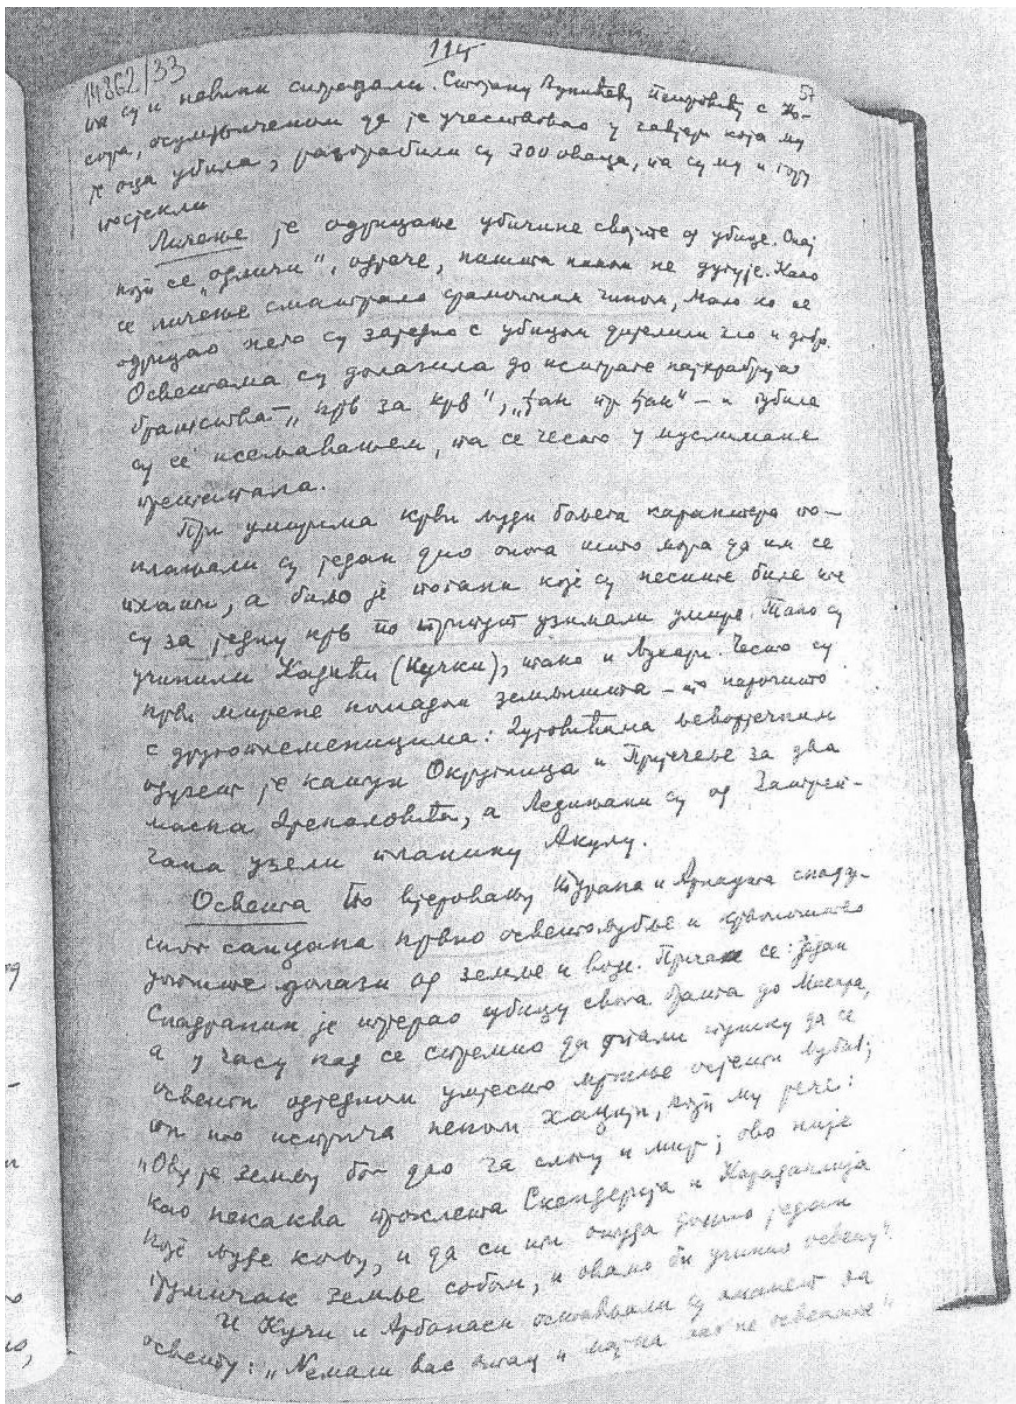 114
14862/33
57
ти су и невини страдали. Стојану Вучићеву Петровићу с Ко-
сора, осумњиченом да је учествовао у завјери која му
је оца убила, разграбили су 300 оваца, па су му и гору
посјекли
Личење је одрицање убичине својте од убице. Онај
који се „одличи“, одрече, ништа ником не дугује. Како
се личење сматрало срамотним чином, мало ко се
одрицао него су заједно с убицом дијелили зло и добро.
Осветама су долазила до истраге најхрабрија
братства „крв за крв“, „ђан при ђан“ – и губила
су се исељавањем, па се често у муслимане
претапала.
При умирима крви људи бољега карактера по-
клањали су један дио онога што мора да им се
да, а било је погани које су несите биле те
су за једну крв по тринут узимали умире. Тако су
учинили Кадићи (Кучки), тако и Љухари. Често су
крви мирене комадом земљишта – то нарочито
с другоплеменицима: Љеворечким
одузет је катун Округлица и Пријечење за два
Дрекаловића, а Лединњани су од Затријеп-
чана узели планину Акулу.
Освета По вјеровању Турана и Арнаута скаду-
ског санџака крвно осветољубље и
долази од земље и воде. Прича се: један
Скадранин је ћерао убицу свога брата до Мисира,
а у часу кад се спремио да опали пушку да се
освети одједном умјесто мржње осјети љубав;
он то исприча неком хаџији, који му рече:
„Ову је земљу бог дао за слогу и мир; ово није
као некаква проклета Скендерија и Карадаглија
које људе кољу, и да си ти онуда донио један
грумичак земље собом, и овамо би учинио освету“.
И Кучи и Арбанаси остављали су аманет за
освету: „Немали вас отац и мајка ако не осветите“